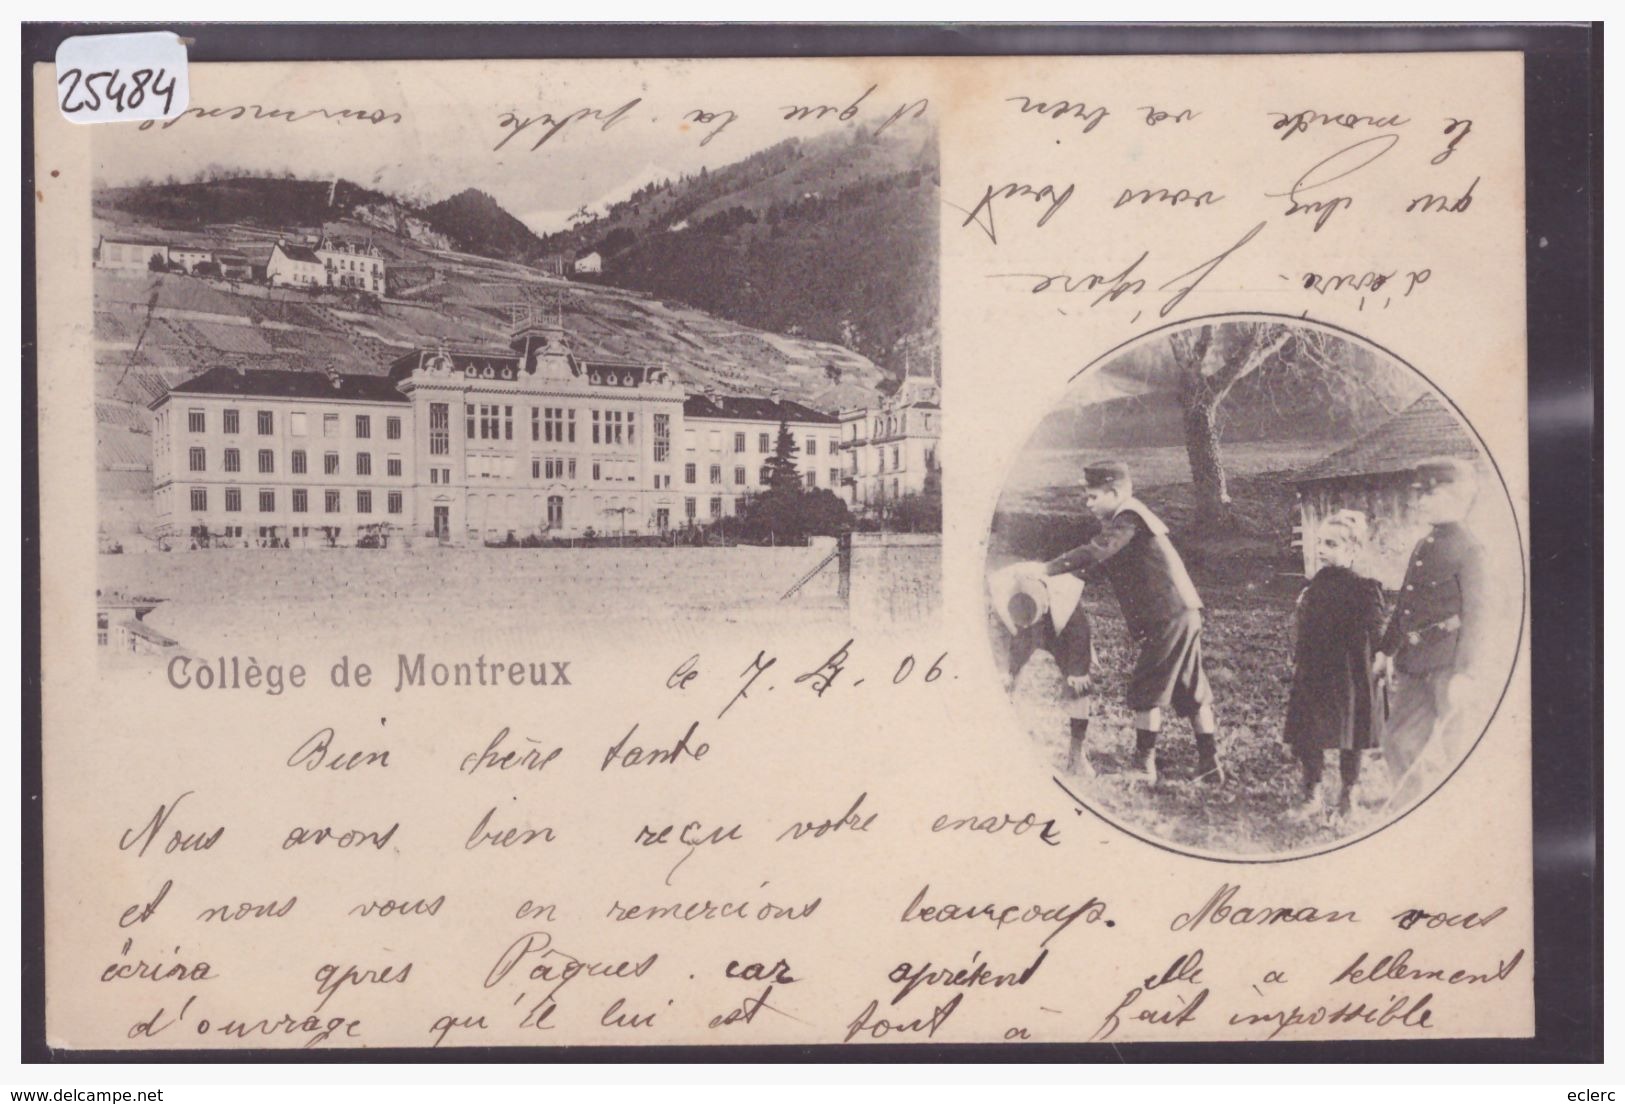 25484
Collège de Montreux
le 7. 4. 06.
Bien chère tante
Nous avons bien reçu votre envoi
et nous vous en remercions beaucoup. Maman vous
écrira après Pâques. car aprésent elle a tellement
d'ouvrage qu'il lui est tout à fait impossible
d'écrire. J'éspère
que chez vous tout
le monde va bien
et que la petite commence
delcampe.net
eclerc